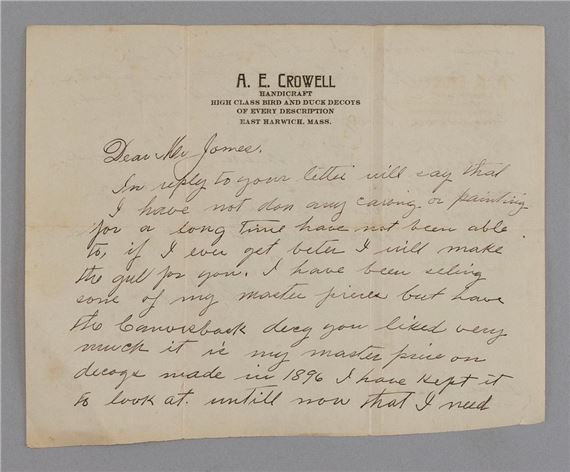 A. E. CROWELL
HANDICRAFT
HIGH CLASS BIRD AND DUCK DECOYS
OF EVERY DESCRIPTION
EAST HARWICH, MASS.
Dear Mr James.
In reply to your letter will say that
I have not don any caring or painting
for a long time have not been able
to, if I ever get beter I will make
the gull for you. I have been seling
some of my master pieces but have
the Canvesback decy you liked very
much it is my master piece on
decoys made in 1896 I have kept it
to look at. untill now that I need